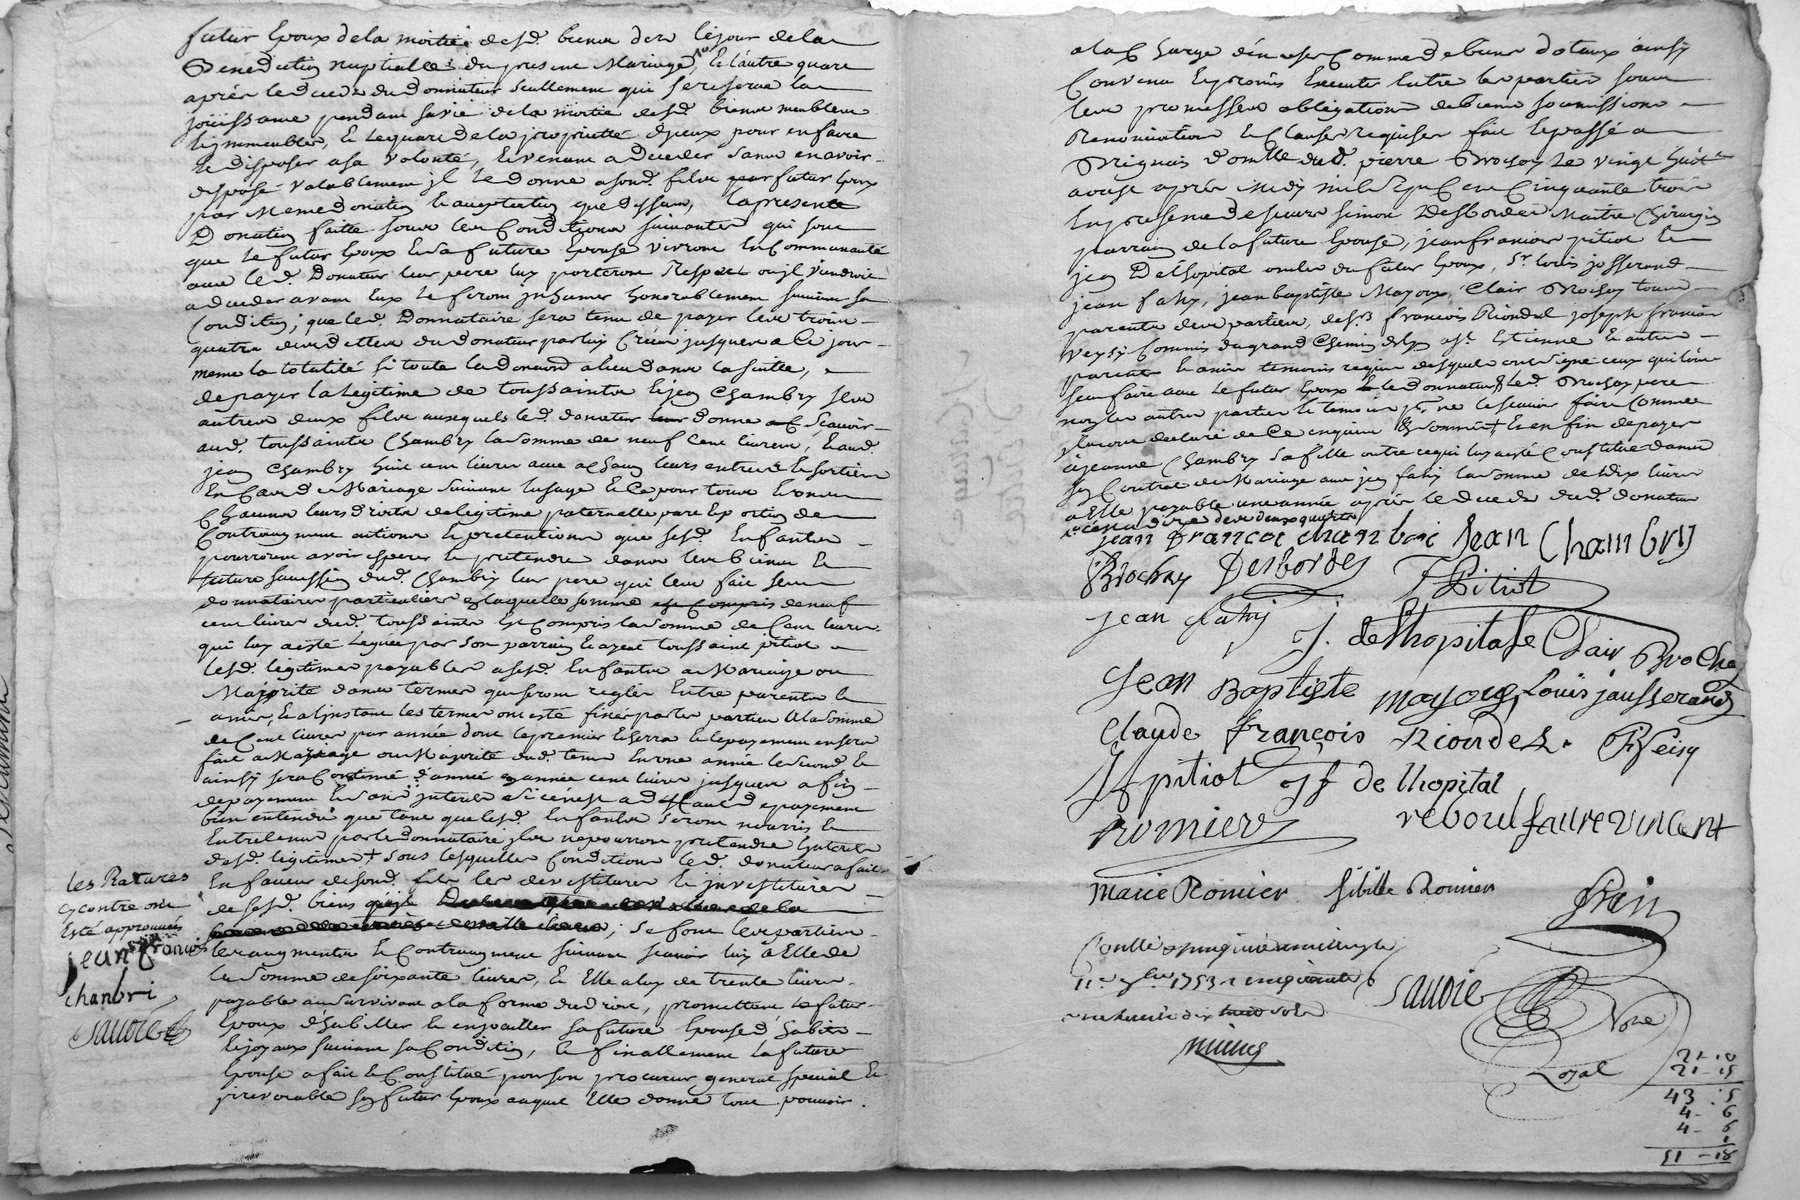 futur Epoux de la moitié desd. biens dez le jour de la
Bénédiction nuptialle du present Mariage, & l'autre quart
après le deceds du donnateur seullement qui se reserve la
jouissance pendant sa vie de la moitié desd. biens meubles
& immeubles, & le quart de la proprietté d'jceux pour en faire
& disposer a sa volonté, & venant a deceder sans en avoir
disposé valablement jl le donne a sond. fils futur Epoux
par meme donation & acceptation que dessus, la presente
Donation faitte sous les Conditions suivantes qui sont
que le futur Epoux & sa future Epouse vivront en Communauté
avec led. Donateur leur pere luy porteront Respect ou jl viendroit
a deceder avant eux le feront jnhumer honorablement suivant sa
Condition; que led. Donnataire sera tenu de payer les trois
quatre des dettes du donateur par luy Créées jusques a Ce jour
meme la totalité si toute la donation a lieu dans la suitte,
de payer la legitime de toussainte & jean Chambry ses
autres deux fils auxquels led. donateur donne Scavoir
aud. toussainte Chambry la somme de neuf Cent livres, & aud.
jean Chambry huit cent livres avec a chacun leurs entrées & sorties
En Cas de Mariage suivant l'usage & Ce pour tous & uns
Chacuns leurs droits de legitime paternelle part & portion de
Contraugment actions & pretentions que sesd. Enfants
pourroient avoir esperer & pretendre dans les biens &
future succession dud. Chambry leur pere qui les fait ses
donnataires particuliers laquelle somme de neuf
cent livres dud. toussainte Est Compris la somme de Cent livres
qui luy a esté leguée par son parrain & ayeul toussaint pitiot
lesd. legitimes payables a sesd. Enfants a Mariage ou
Majorité dans termes qui seront reglés Entre parents &
amis, & a l'instant les termes ont esté fixés par les parties a la somme
de Cent livres par année dont le premier & serra le payement en sera
fait a Mariage ou Majorité dud. tems En une année le second &
ainsy sera Continué d'année en année cent livres jusques a fin
de payement
bien entendu que tant que lesd. Enfants seront nourris &
Entretenus par le donnataire jls ne pourront pretendre Interets
desd. legitimes + sous lesquelles Conditions led. donateur a fait
En faveur de sond. fils les devestitures & jnvestitures
de sesd. biens
se font les parties
les augments & Contraugment suivant scavoir luy a Elle de
la Somme de soixante livres, & Elle a luy de trente livres
payable au survivant a la forme du droit, promettant le futur
Epoux d'habiller & enjoailler sa future Epouse d'habits
& joyaux suivant sa Condition, & finallement la future
Epouse a fait & Constitué pour son procureur general special &
jrrevocable son futur Epoux auquel Elle donne tout pouvoir
les Ratures
cy contre ont
Esté approuvées
jean françois
chanbri
Sauvie
a la Charge d'en user Comme de biens dotaux ainsy
Convenu & promis Executer Entre les parties sous
leur promesses obligations de biens soumissions
Renonciations & Clauses requises fait & passé a
Brignais domille dud. pierre Brochay le vingt huit
aoust après midy mil sept Cent Cinquante trois
En presence de sieurs Simon Desbordes Maitre Chirurgien
parrain de la future Epouse, jean françois pitiot &
jean Delhopital oncles du futur Epoux, Sr. louis josserand
jean fahy, jean baptiste Mayoux, Clair Brochay tous
parents des parties, desrs. françois Riondel joseph françois
Veysy Commis du grand Chemin & autres
parents & amis temoins requis desquels ont signé ceux qui l'ont
sceu faire avec le futur Epoux & le donnateur led. Brochay pere
non les autres parties & temoins pour ne le scavoir faire Comme
jls nous ont declaré de Ce enquis & sommés + & en fin de payer
a jeanne Chambry sa fille outre ce qui luy a esté Constitué dans
son Contrat de Mariage avec jean fahy la somme de dix livres
a Elle payable une année après le deceds dud. donateur
a Cens a dire des deux quarts
jean francoi chanbri Jean Chambry
Brochay Desbordes J Pitiot
jean fahy J. delhopital Clair Brochay
Jean Baptiste mayoux, Louis jausserand
Claude françois Riondel. Veisy
J f pitiot J f de lhopital
romier reboul faure vincent
Marie Romier Sibille Romier
1753
Sauvie
Nore
Royal
21-10
21-15
43:5
4-6
4-6
1
51-18